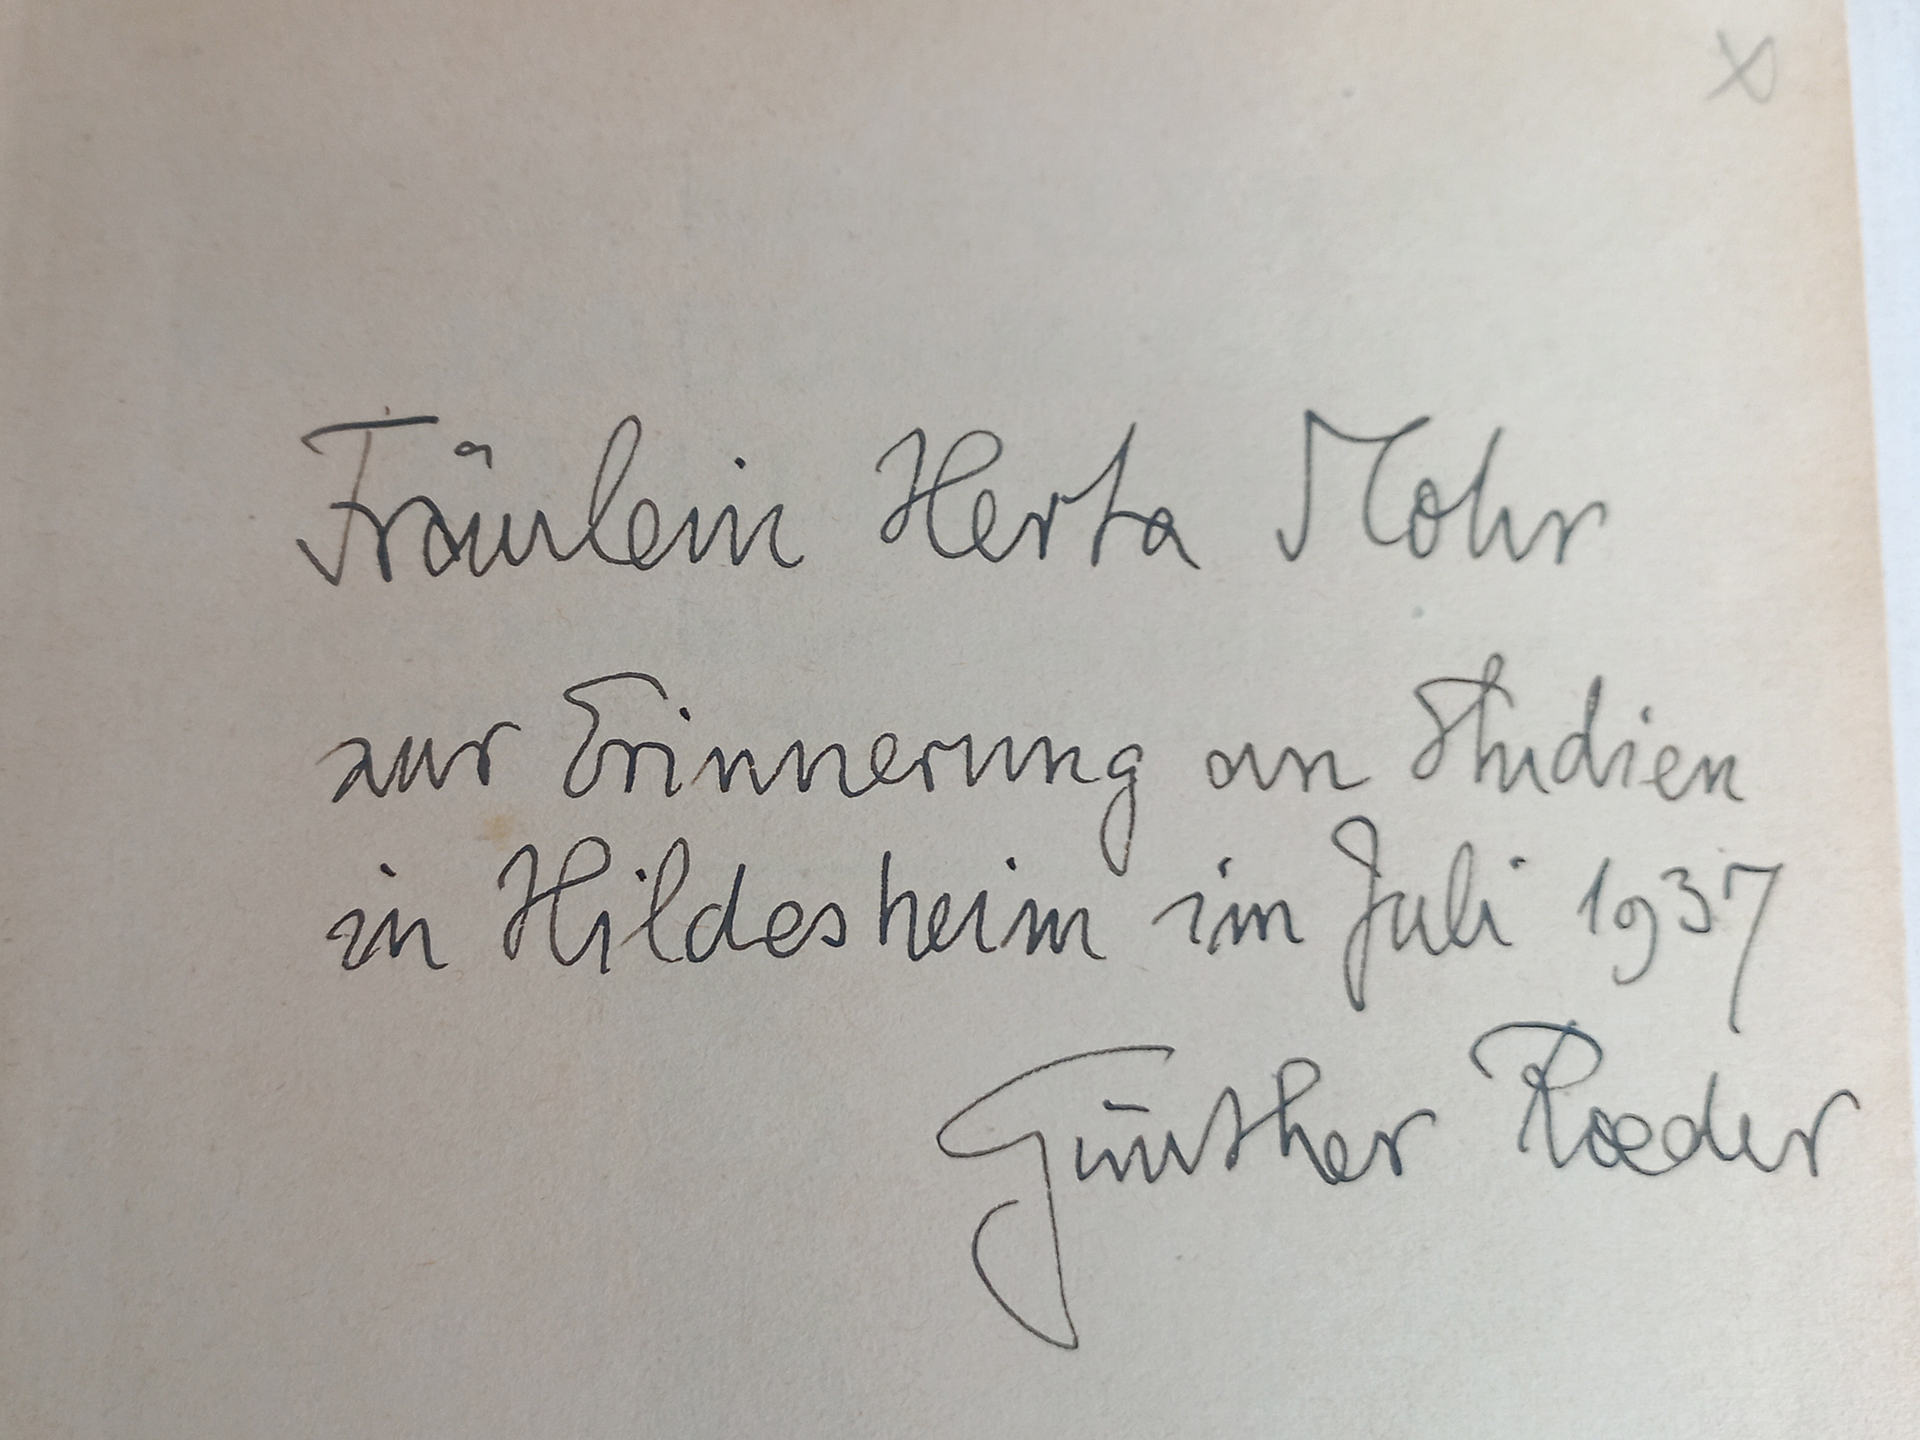 x
Fräulein Herta Mohr
zur Erinnerung an Studien
in Hildesheim im Juli 1937
Günther Roeder